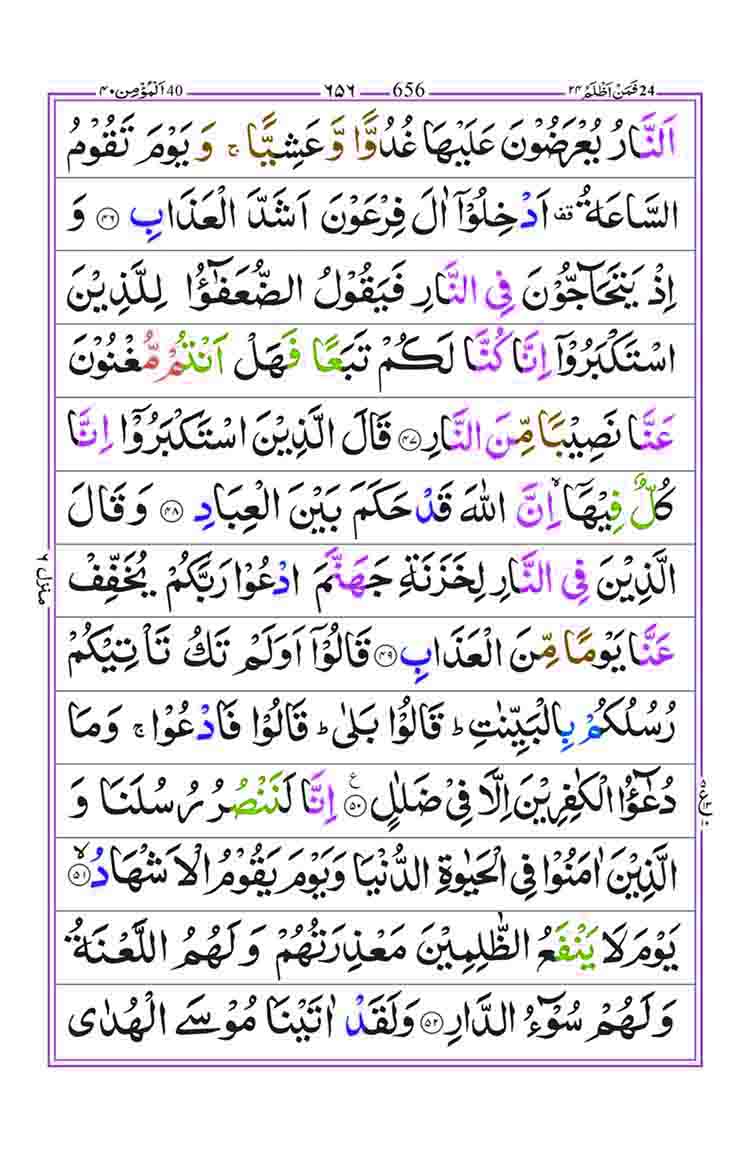 24 فَمَنْ اَظْلَمُ ۲۴ 656 ۶۵۶ 40 اَلْمُؤْمِن ۴۰
اَلنَّارُ يُعْرَضُوْنَ عَلَيْهَا غُدُوًّا وَّ عَشِيًّا ۚ وَ يَوْمَ تَقُوْمُ
السَّاعَةُ ۟ اَدْخِلُوْۤا اٰلَ فِرْعَوْنَ اَشَدَّ الْعَذَابِ ﴿۴۶﴾ وَ
اِذْ يَتَحَآجُّوْنَ فِي النَّارِ فَيَقُوْلُ الضُّعَفٰٓؤُا لِلَّذِيْنَ
اسْتَكْبَرُوْۤا اِنَّا كُنَّا لَكُمْ تَبَعًا فَهَلْ اَنْتُمْ مُّغْنُوْنَ
عَنَّا نَصِيْبًا مِّنَ النَّارِ ﴿۴۷﴾ قَالَ الَّذِيْنَ اسْتَكْبَرُوْۤا اِنَّا
كُلٌّ فِيْهَاۤ ۙ اِنَّ اللّٰهَ قَدْ حَكَمَ بَيْنَ الْعِبَادِ ﴿۴۸﴾ وَ قَالَ
الَّذِيْنَ فِي النَّارِ لِخَزَنَةِ جَهَنَّمَ ادْعُوْا رَبَّكُمْ يُخَفِّفْ
عَنَّا يَوْمًا مِّنَ الْعَذَابِ ﴿۴۹﴾ قَالُوْۤا اَوَلَمْ تَكُ تَاْتِيْكُمْ
رُسُلُكُمْ بِالْبَيِّنٰتِ ؕ قَالُوْا بَلٰى ؕ قَالُوْا فَادْعُوْا ۚ وَمَا
دُعٰٓؤُا الْكٰفِرِيْنَ اِلَّا فِيْ ضَلٰلٍ ﴿۵۰﴾ ع اِنَّا لَنَنْصُرُ رُسُلَنَا وَ
الَّذِيْنَ اٰمَنُوْا فِي الْحَيٰوةِ الدُّنْيَا وَيَوْمَ يَقُوْمُ الْاَشْهَادُ ﴿۵۱﴾ ۙ
يَوْمَ لَا يَنْفَعُ الظّٰلِمِيْنَ مَعْذِرَتُهُمْ وَلَهُمُ اللَّعْنَةُ
وَلَهُمْ سُوْٓءُ الدَّارِ ﴿۵۲﴾ وَلَقَدْ اٰتَيْنَا مُوْسَى الْهُدٰى
منزل ۶